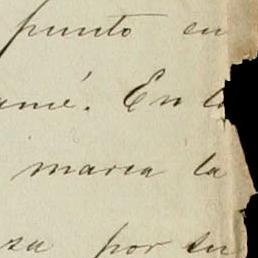 punto en
amé. En l
marca la
sa por su